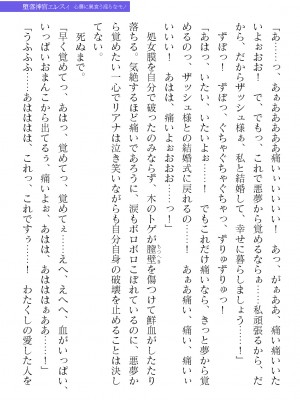 堕落神官エレスィ 心臓に無貌で淫らなモノ
「あ…っ、あ、ああああああ痛いいいいい！　あっ、がぁああ、痛いい
いよぉおお！　で、でもっ、これで悪夢から覚めるなら…私頑張るから、だ
から、だからザッシュ様ぁ、私と結婚して、幸せに暮らしましょう……！」
ずぼっ！　ずぼっ　ぐちゃぐちゃぐちゃっ、ずりゅずりゅっ！
「あはっ、いたい、いたいよぉ……！　でもこれだけ痛いなら、きっと夢から覚
めるのっ、ザッシュ様との結婚式に戻れるの……！　あああ痛いい、痛いいいい
いいい！　あはは、痛いよぉおおお……っ！」
処女膜を自分で破ったのみならず、木のトゲが膣壁を傷つけて鮮血がしたたり
落ちる。気絶するほど痛いであろうに、涙もボロボロこぼれているのに、悪夢か
ら覚めたい一心でリアナは泣き笑いながらも自分自身の破壊を止めることは決し
てない。
死ぬまで
「早く覚めてっ、あはっ、覚めてっ、覚めてぇ……えへ、えへへ、血がいっぱい、
いっぱいおまんこから出てるぅ、痛いよぉ、あはは、あはははぁああ……！」
「うふふふ、……あはははは、これっ、これですぅ……！　わたくしの愛した人を